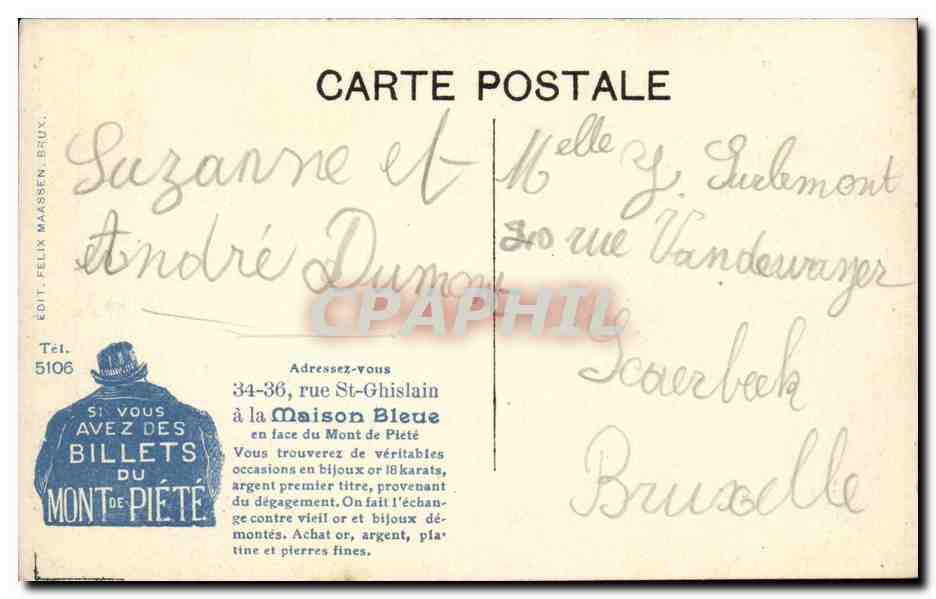 CARTE POSTALE
EDIT. FELIX MAASSEN. BRUX.
Suzanne et
André Dumont
Melle Y. Surlemont
rue Vandeweyer
Scaerbeek
Bruxelle
CPAPHIL
Tél.
5106
SI VOUS
AVEZ DES
BILLETS
DU
MONT DE PIÉTÉ
Adressez-vous
34-36, rue St-Ghislain
à la Maison Bleue
en face du Mont de Piété
Vous trouverez de véritables
occasions en bijoux or 18 karats,
argent premier titre, provenant
du dégagement. On fait l'échan-
ge contre vieil or et bijoux dé-
montés. Achat or, argent, pla-
tine et pierres fines.